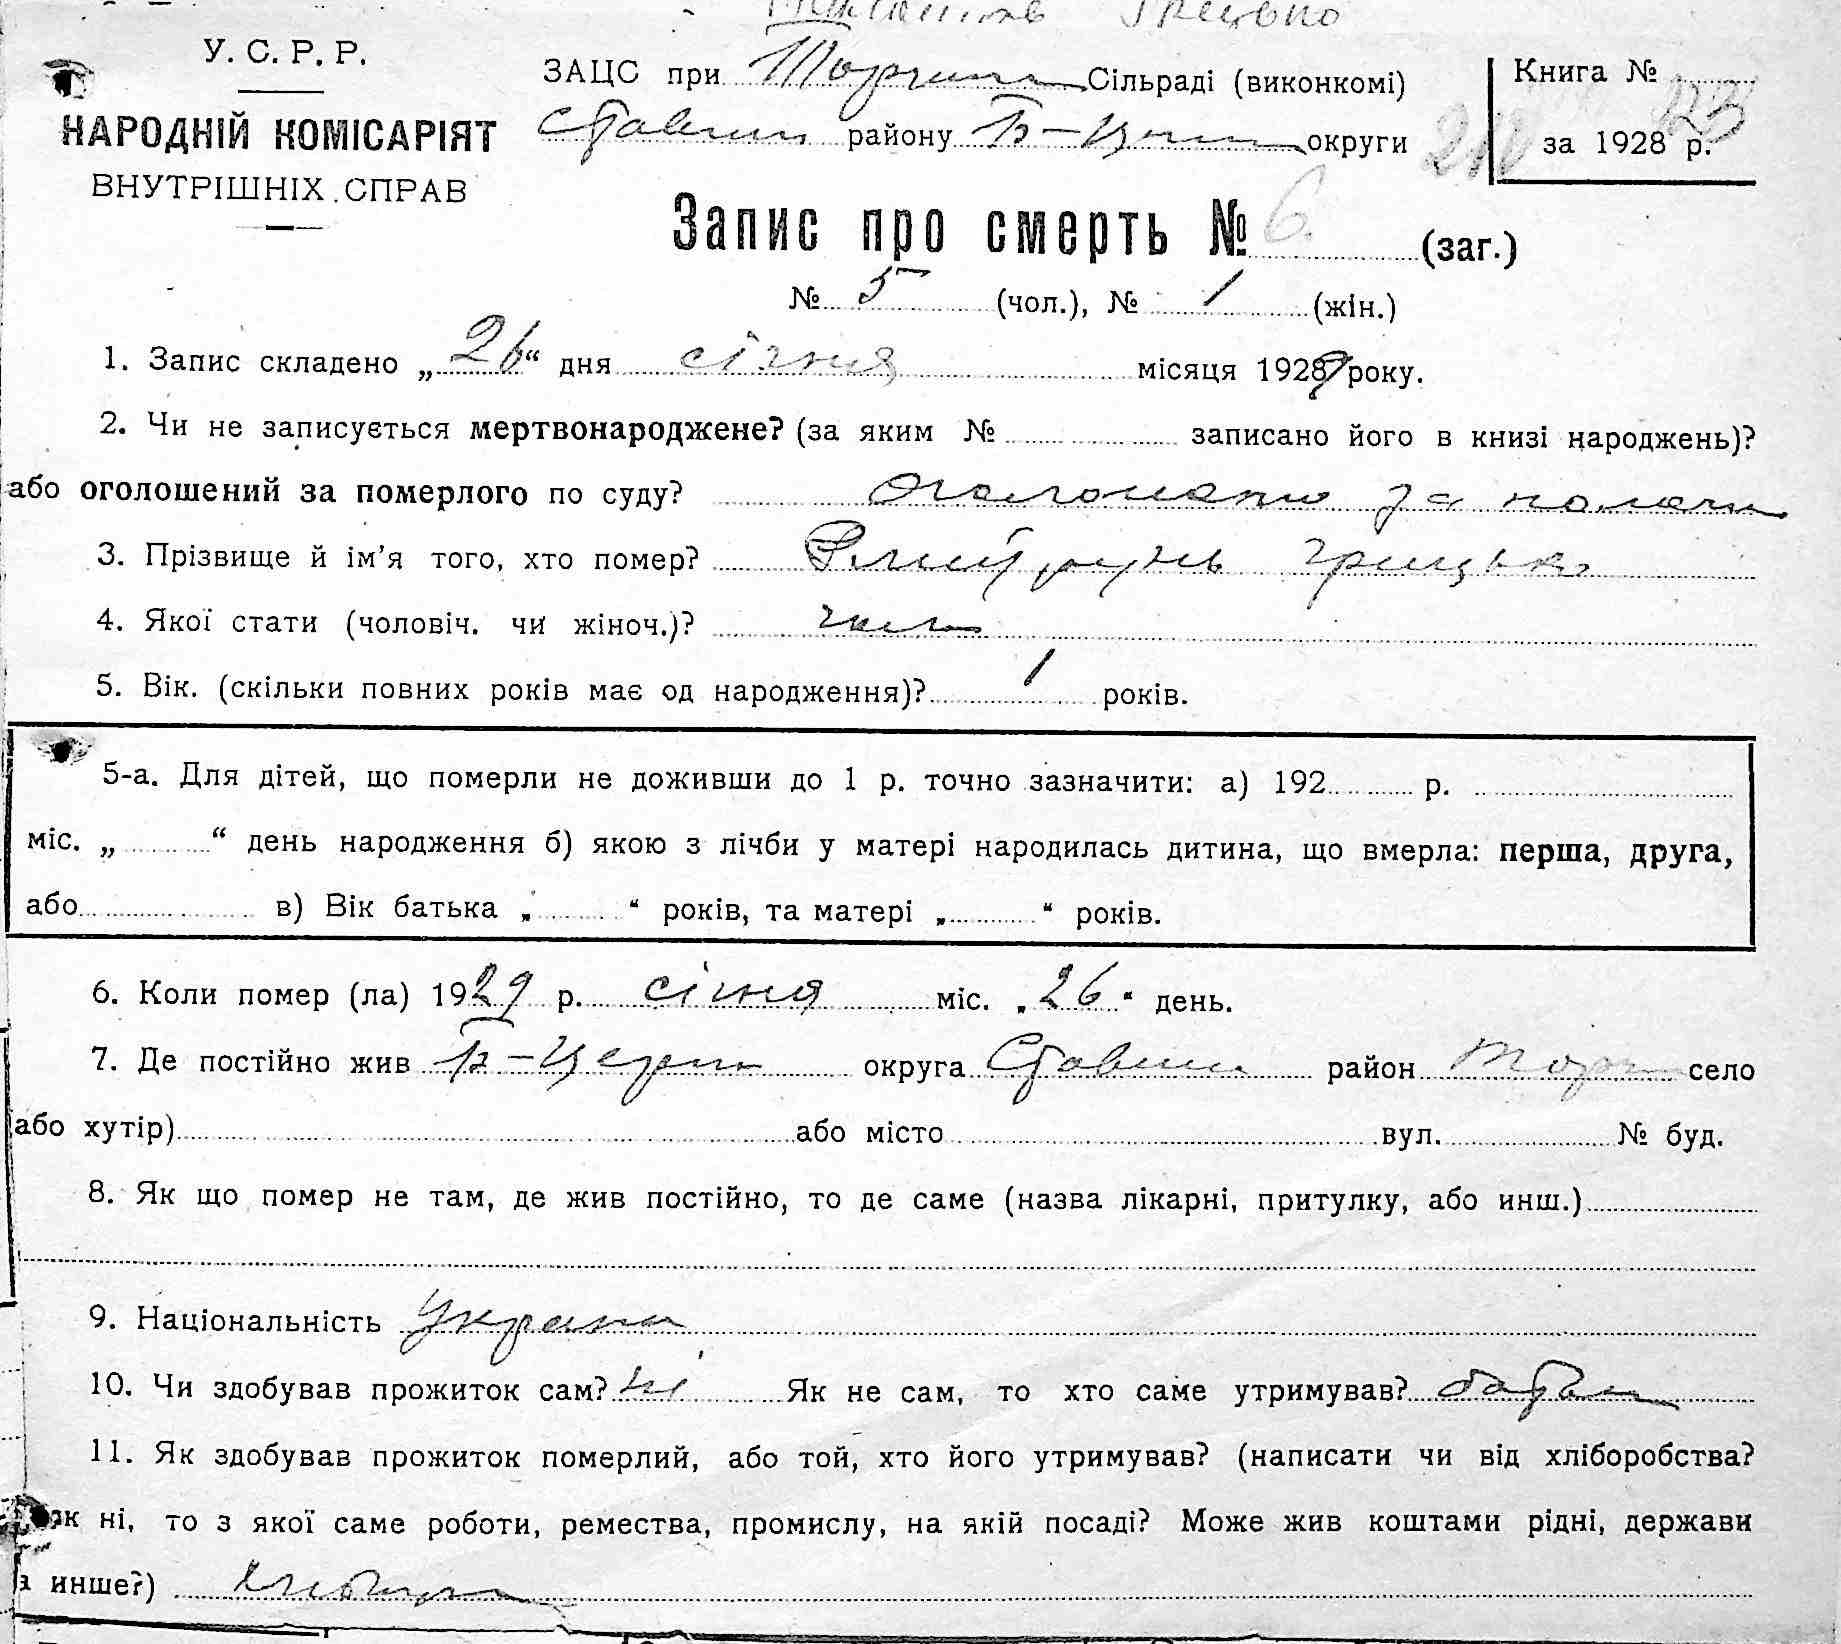 Грицько
У. С. Р. Р.
НАРОДНІЙ КОМІСАРІЯТ
ВНУТРІШНІХ СПРАВ
ЗАЦС при Торчиць Сільраді (виконкомі)
Ставищ району Б-Церк округи
Книга №
за 1928 р.
Запис про смерть № 6 (заг.)
№ 5 (чол.), № 1 (жін.)
1. Запис складено „26“ дня січня місяця 1929 року.
2. Чи не записується мертвонароджене? (за яким № записано його в книзі народжень)?
або оголошений за померлого по суду? за
3. Прізвище й ім’я того, хто помер? Грицько
4. Якої стати (чоловіч. чи жіноч.)? чол
5. Вік. (скільки повних років має од народження)? 1 років.
5-а. Для дітей, що померли не доживши до 1 р. точно зазначити: а) 192 р.
міс. „ “ день народження б) якою з лічби у матері народилась дитина, що вмерла: перша, друга,
або в) Вік батька „ “ років, та матері „ “ років.
6. Коли помер (ла) 1929 р. січня міс. „26“ день.
7. Де постійно жив Б-Церк округа Ставищ район Торч село
або хутір) або місто вул. № буд.
8. Як що помер не там, де жив постійно, то де саме (назва лікарні, притулку, або инш.)
9. Національність Україн
10. Чи здобував прожиток сам? ні Як не сам, то хто саме утримував? батьк
11. Як здобував прожиток померлий, або той, хто його утримував? (написати чи від хліборобства?
як ні, то з якої саме роботи, ремества, промислу, на якій посаді? Може жив коштами рідні, держави
а инше?) хлібор